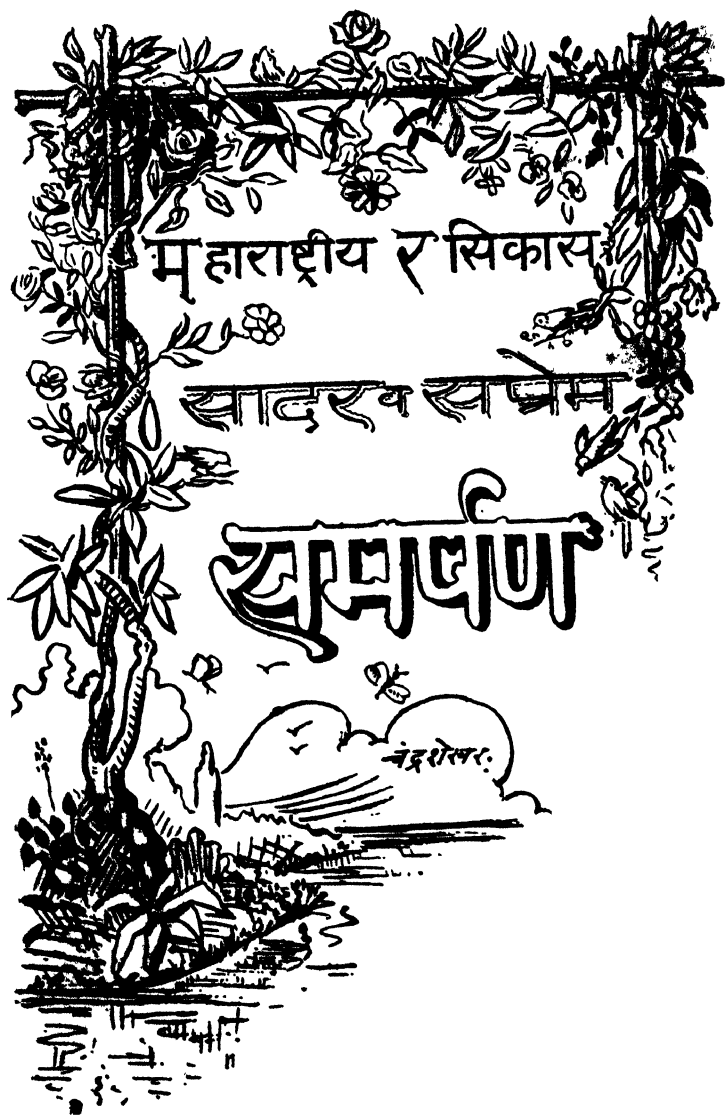 महाराष्ट्रीय रसिकास
सादर व सप्रेम
समर्पण
चंद्रशेखर.